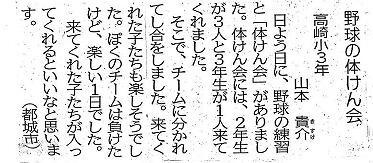 野球の体けん会
高崎小3年
山本 貴介
きすけ
日よう日に、野球の練習
と「体けん会」がありまし
た。体けん会には、2年生
が3人と3年生が1人来て
くれました。
そこで、チームに分かれ
てし合をしました。来てく
れた子たちも楽しそうでし
た。ぼくのチームは負けた
けど、楽しい1日でした。
来てくれた子たちが入っ
てくれるといいなと思いま
す。
(都城市)